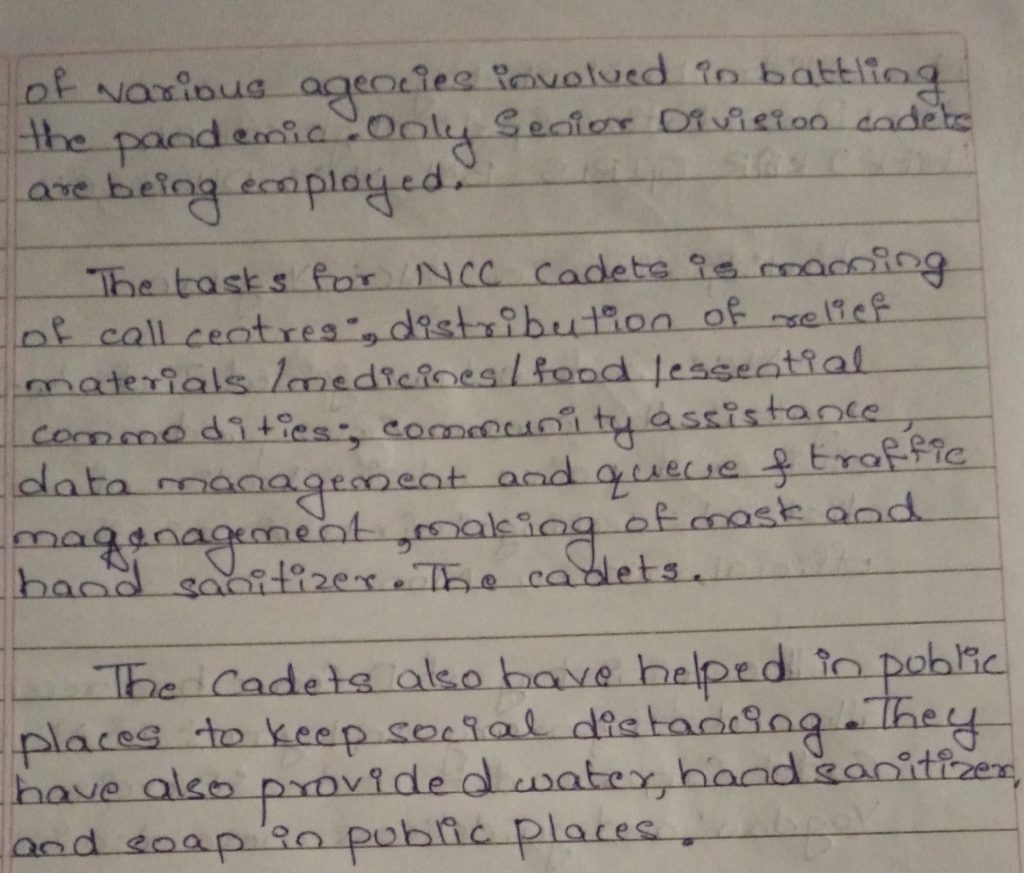 of various agencies involved in battling
the pandemic. Only Senior Division cadets
are being employed.
The tasks for NCC Cadets is manning
of call centres;, distribution of relief
materials /medicines/food /essential
commodities;, community assistance,
data management and queue & traffic
magenagement, making of mask and
hand sanitizer. The cadets.
The Cadets also have helped in public
places to keep social distancing. They
have also provided water, hand sanitizer,
and soap in public places.